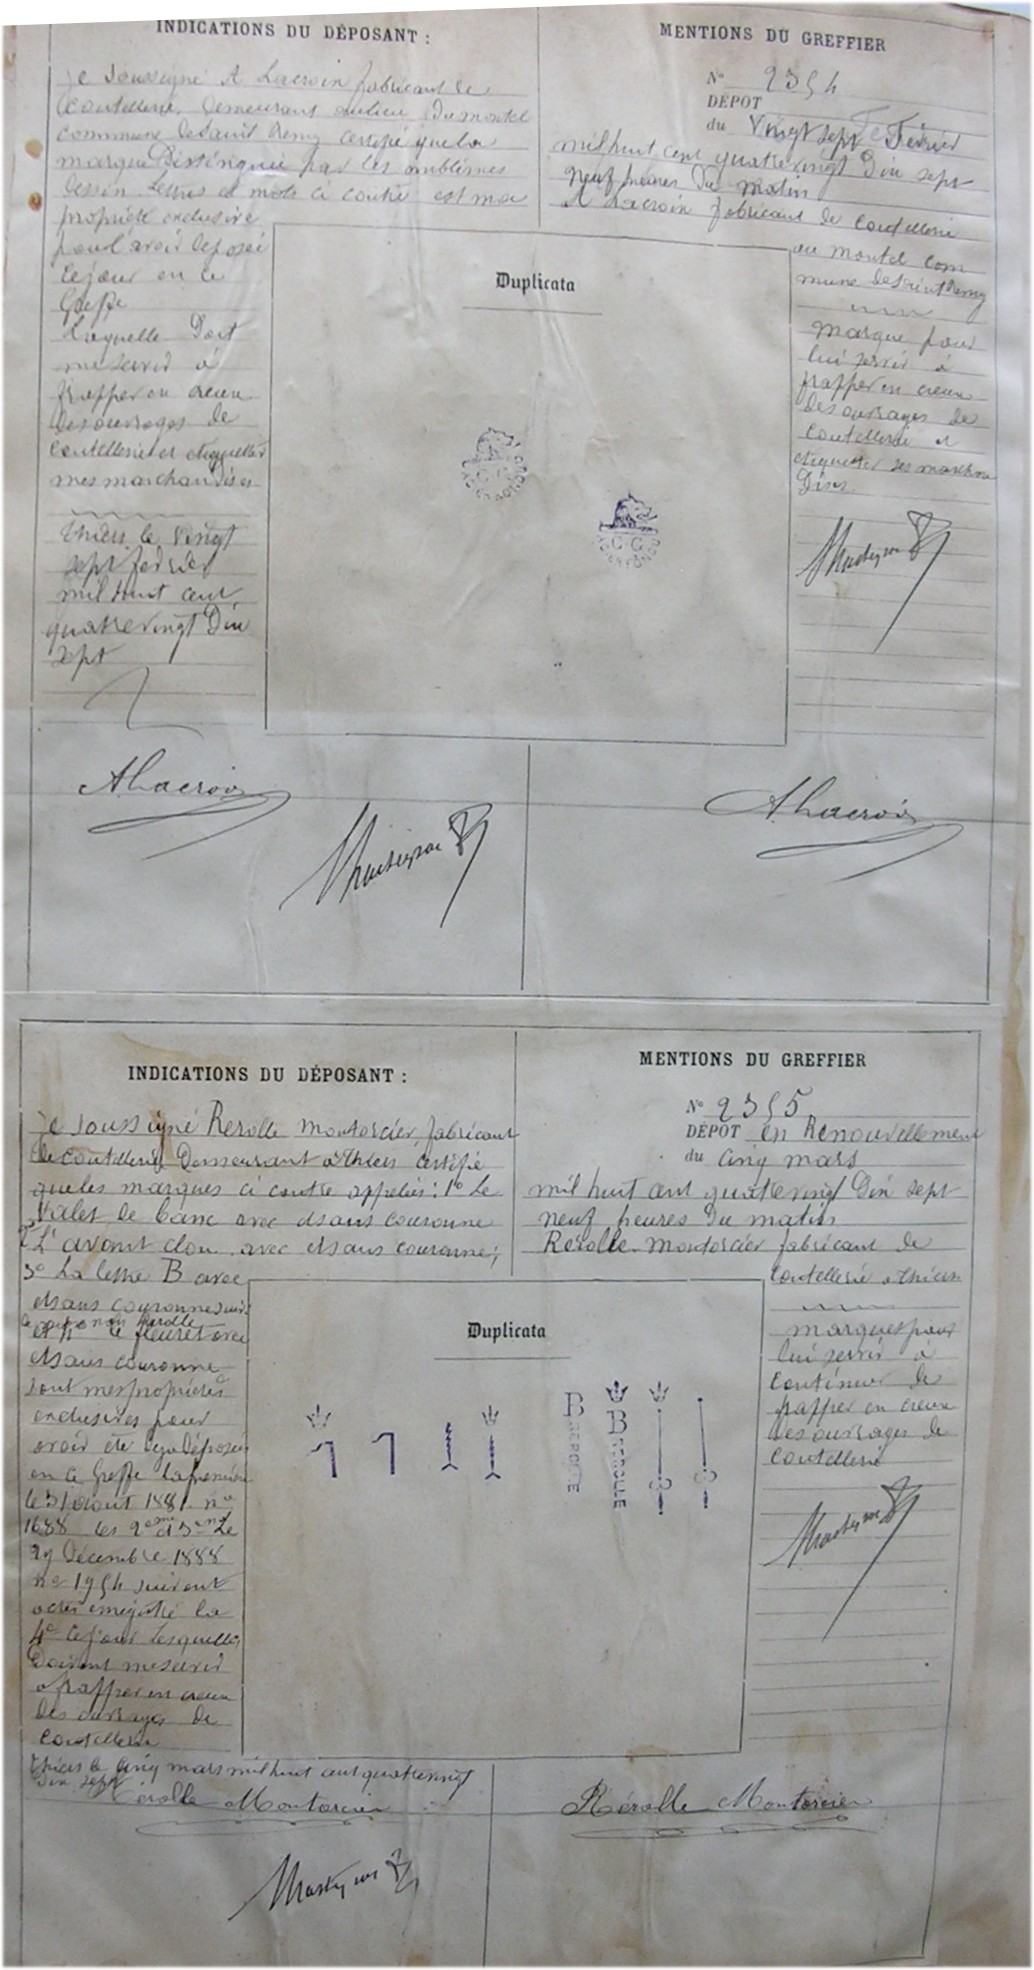 INDICATIONS DU DÉPOSANT :
je soussigné A Lacroix fabricant de
coutellerie, demeurant au lieu Dumontel
commune de Saint Remy certifie que la
marque Distinguée par les emblèmes
dessin lettres et mots ci contre est ma
propriété exclusive
pour l'avoir déposée
ce jour en ce
Greffe
Laquelle Doit
me servir à
frapper en creux
des ouvrages de
coutellerie et étiquetter
mes marchandises
Thiers le vingt
sept fevrier
mil huit cent
quatre vingt Dix
sept
MENTIONS DU GREFFIER
N° 2354
DÉPOT
du Vingt sept Fevrier
mil huit cent quatre vingt Dix sept
neuf heures Du matin
A Lacroix fabricant de coutellerie
au montel com
mune de Saint Remy
marque pour
lui servir à
frapper en creux
des ouvrages de
coutellerie et
étiquetter ses marchan
dises
Duplicata
C. C.
A Lacroix
A Lacroix
INDICATIONS DU DÉPOSANT :
je soussigné Rerolle Montorcier, fabricant
de coutellerie Demeurant à Thiers certifie
que les marques ci contre appelées : 1° Le
Valet de banc avec et sans couronne
2° L' avant clou avec et sans couronne ;
3° La lettre B avec
et sans couronne suivi
de mon nom Rerolle
et 4° le fleuret avec
et sans couronne
sont mes propriétés
exclusives pour
avoir été déjà déposées
en ce Greffe la première
le 31 Août 1881 n°
1688 les 2eme et 3eme le
29 Décembre 1888
n° 1954 suivant
actes enregistré la
4e ce jour Lesquelles
Doivent me servir
à frapper en creux
des ouvrages de
coutellerie
Thiers le cinq mars mil huit cent quatre vingt
Dix sept
MENTIONS DU GREFFIER
N° 2355
DÉPOT en Renouvellement
du cinq mars
mil huit cent quatre vingt Dix sept
neuf heures Du matin
Rerolle-Montorcier fabricant de
coutellerie à Thiers
marques pour
lui servir à
continuer de
frapper en creux
des ouvrages de
coutellerie
Duplicata
B REROLLE
B REROLLE
Rérolle Montorcier
Rérolle Montorcier